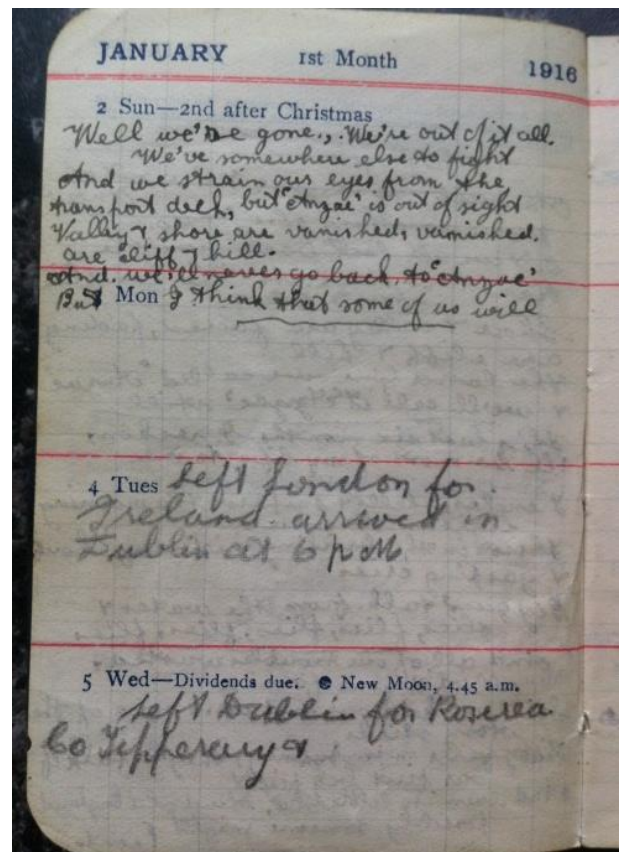 JANUARY 1st Month 1916
2 Sun—2nd after Christmas
Well we're gone., We're out of it all.
We've somewhere else to fight
And we strain our eyes from the
transport deck, but "Anzac" is out of sight
Valley & shore are vanished, vanished.
are cliff & hill.
And we'll never go back to "Anzac"
But Mon I think that some of us will
4 Tues Left London for
Ireland. arrived in
Dublin at 6 pm
5 Wed—Dividends due. New Moon, 4.45 a.m.
Left Dublin for Roscrea
Co Tipperary &